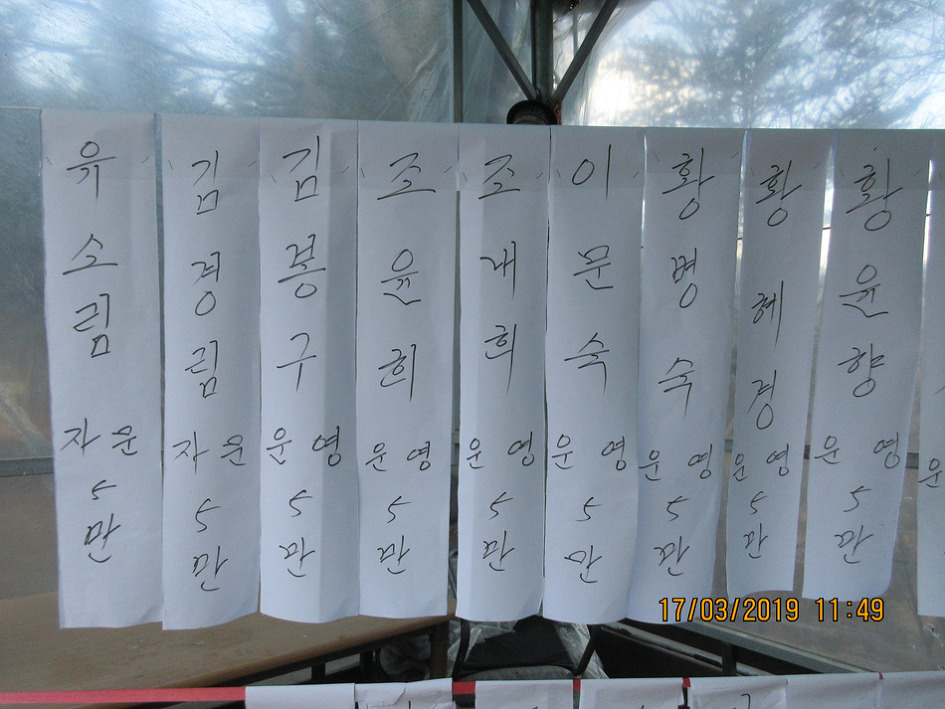 유소림 자운 5만
김경림 자운 5만
김봉구 운영 5만
조윤희 운영 5만
조내희 운영 5만
이문숙 운영 5만
황병숙 운영 5만
황혜경 운영 5만
황윤향 운영 5만
운
17/03/2019 11:49